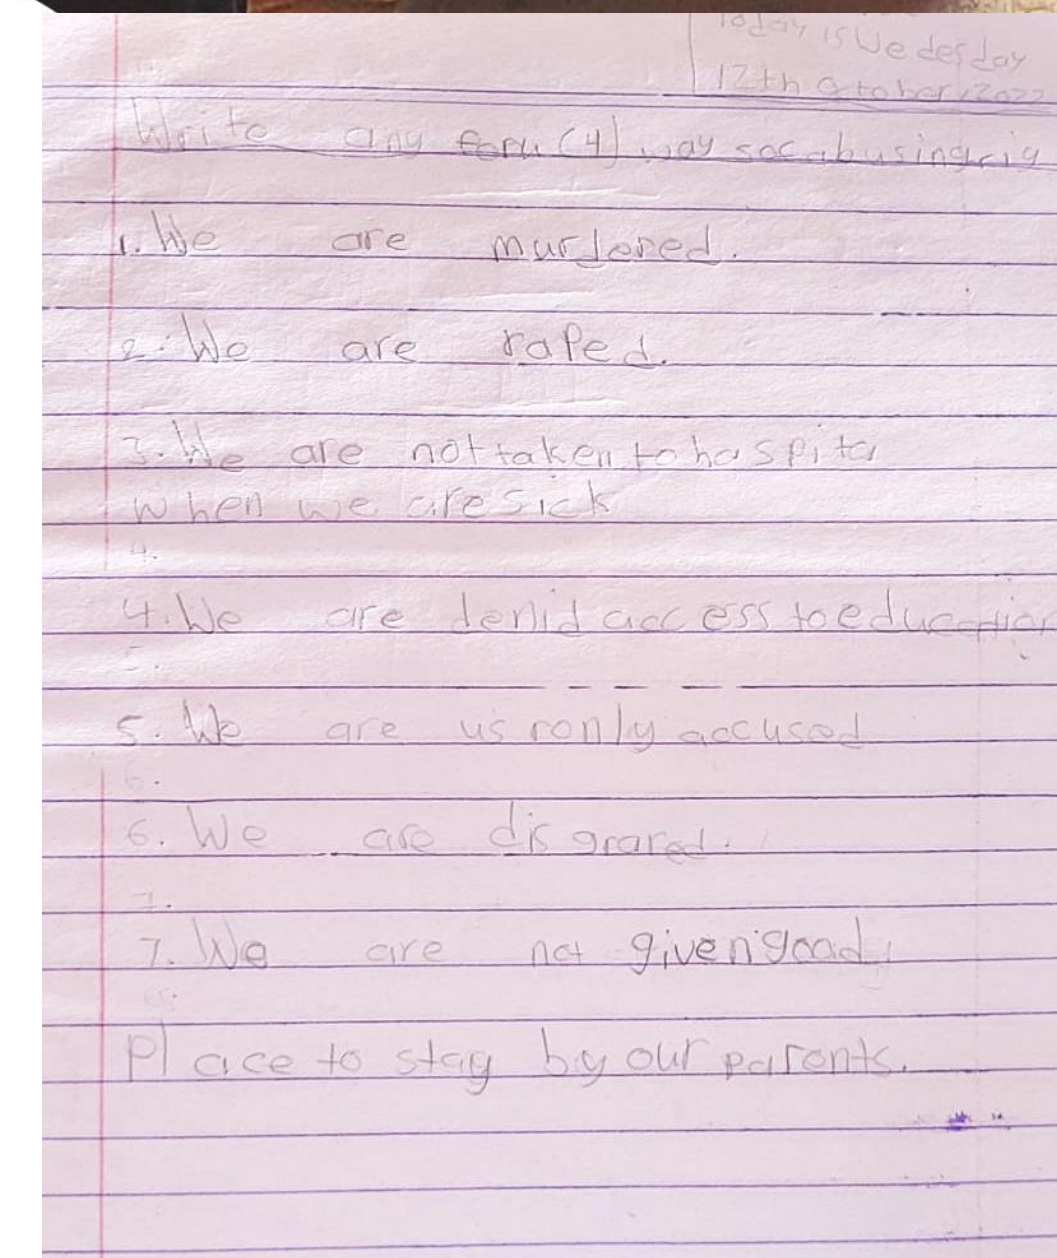 Today is Wedesday
12th October, 2022
Write any form (4) way soc abusing rig
1. We are murdered.
2. We are raped.
3. We are not taken to hospita
when we are sick
4.
4. We are denid access to education
5. We are usronly accused
6.
6. We are disgrared.
7.
7. We are not given good
Place to stay by our parents.